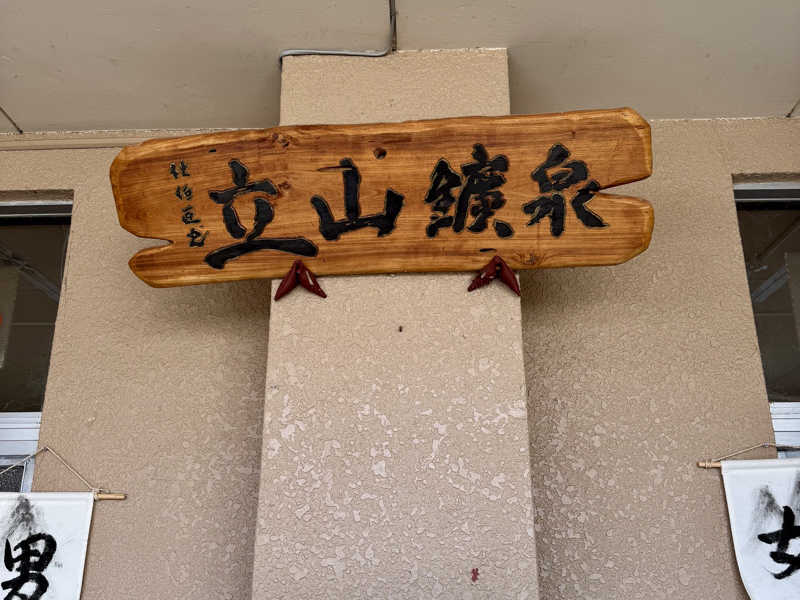 立山鑛泉
男
女